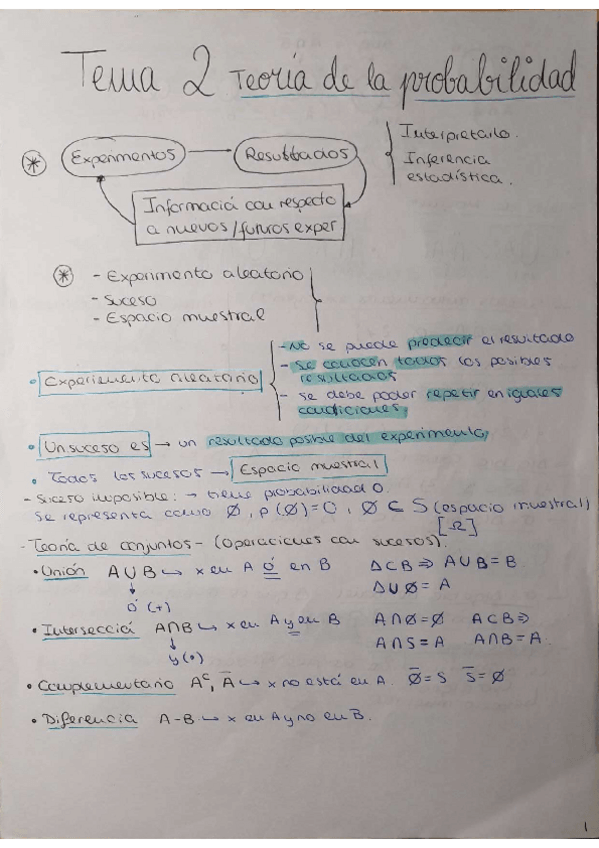 Tema 2 Teoría de la probabilidad
* Experimentos → Resultados
Interpretarlo.
Inferencia
estadística.
Información con respecto
a nuevos/futuros exper
* - Experimento aleatorio
- Suceso
- Espacio muestral
• Experimento Aleatorio
- No se puede predecir el resultado
- se conocen todos los posibles
resultados
- se debe poder repetir en iguales
condiciones,
• Un suceso es → un resultado posible del experimento,
• Todos los sucesos → Espacio muestral
- Suceso imposible: → tiene probabilidad 0.
Se representa como ∅, p(∅)=0, ∅ ⊂ S (espacio muestral)
[Ω]
- Teoría de conjuntos - (operaciones con sucesos).
• Unión A∪B ↪ x en A ó en B A⊂B ⇒ A∪B = B
↓ A∪∅ = A
ó (+)
• Intersección A∩B ↪ x en A y en B A∩∅=∅ A⊂B ⇒
↓ A∩S = A A∩B = A
y (·)
• Complementario Aᶜ, A̅ ↪ x no está en A. ∅̅ = S S̅ = ∅
• Diferencia A-B ↪ x en A y no en B.
1